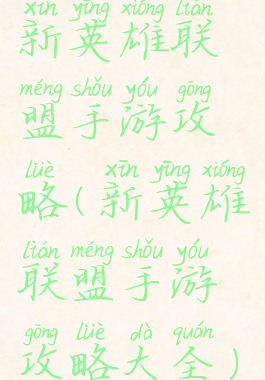 xīn yīng xióng lián
新英雄联
méng shǒu yóu gōng
盟手游攻
lüè xīn yīng xióng
略(新英雄
lián méng shǒu yóu
联盟手游
gōng lüè dà quán
攻略大全)